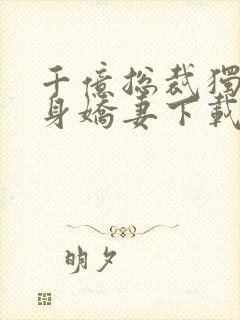 千億總裁獨
身嬌妻下載
明夕